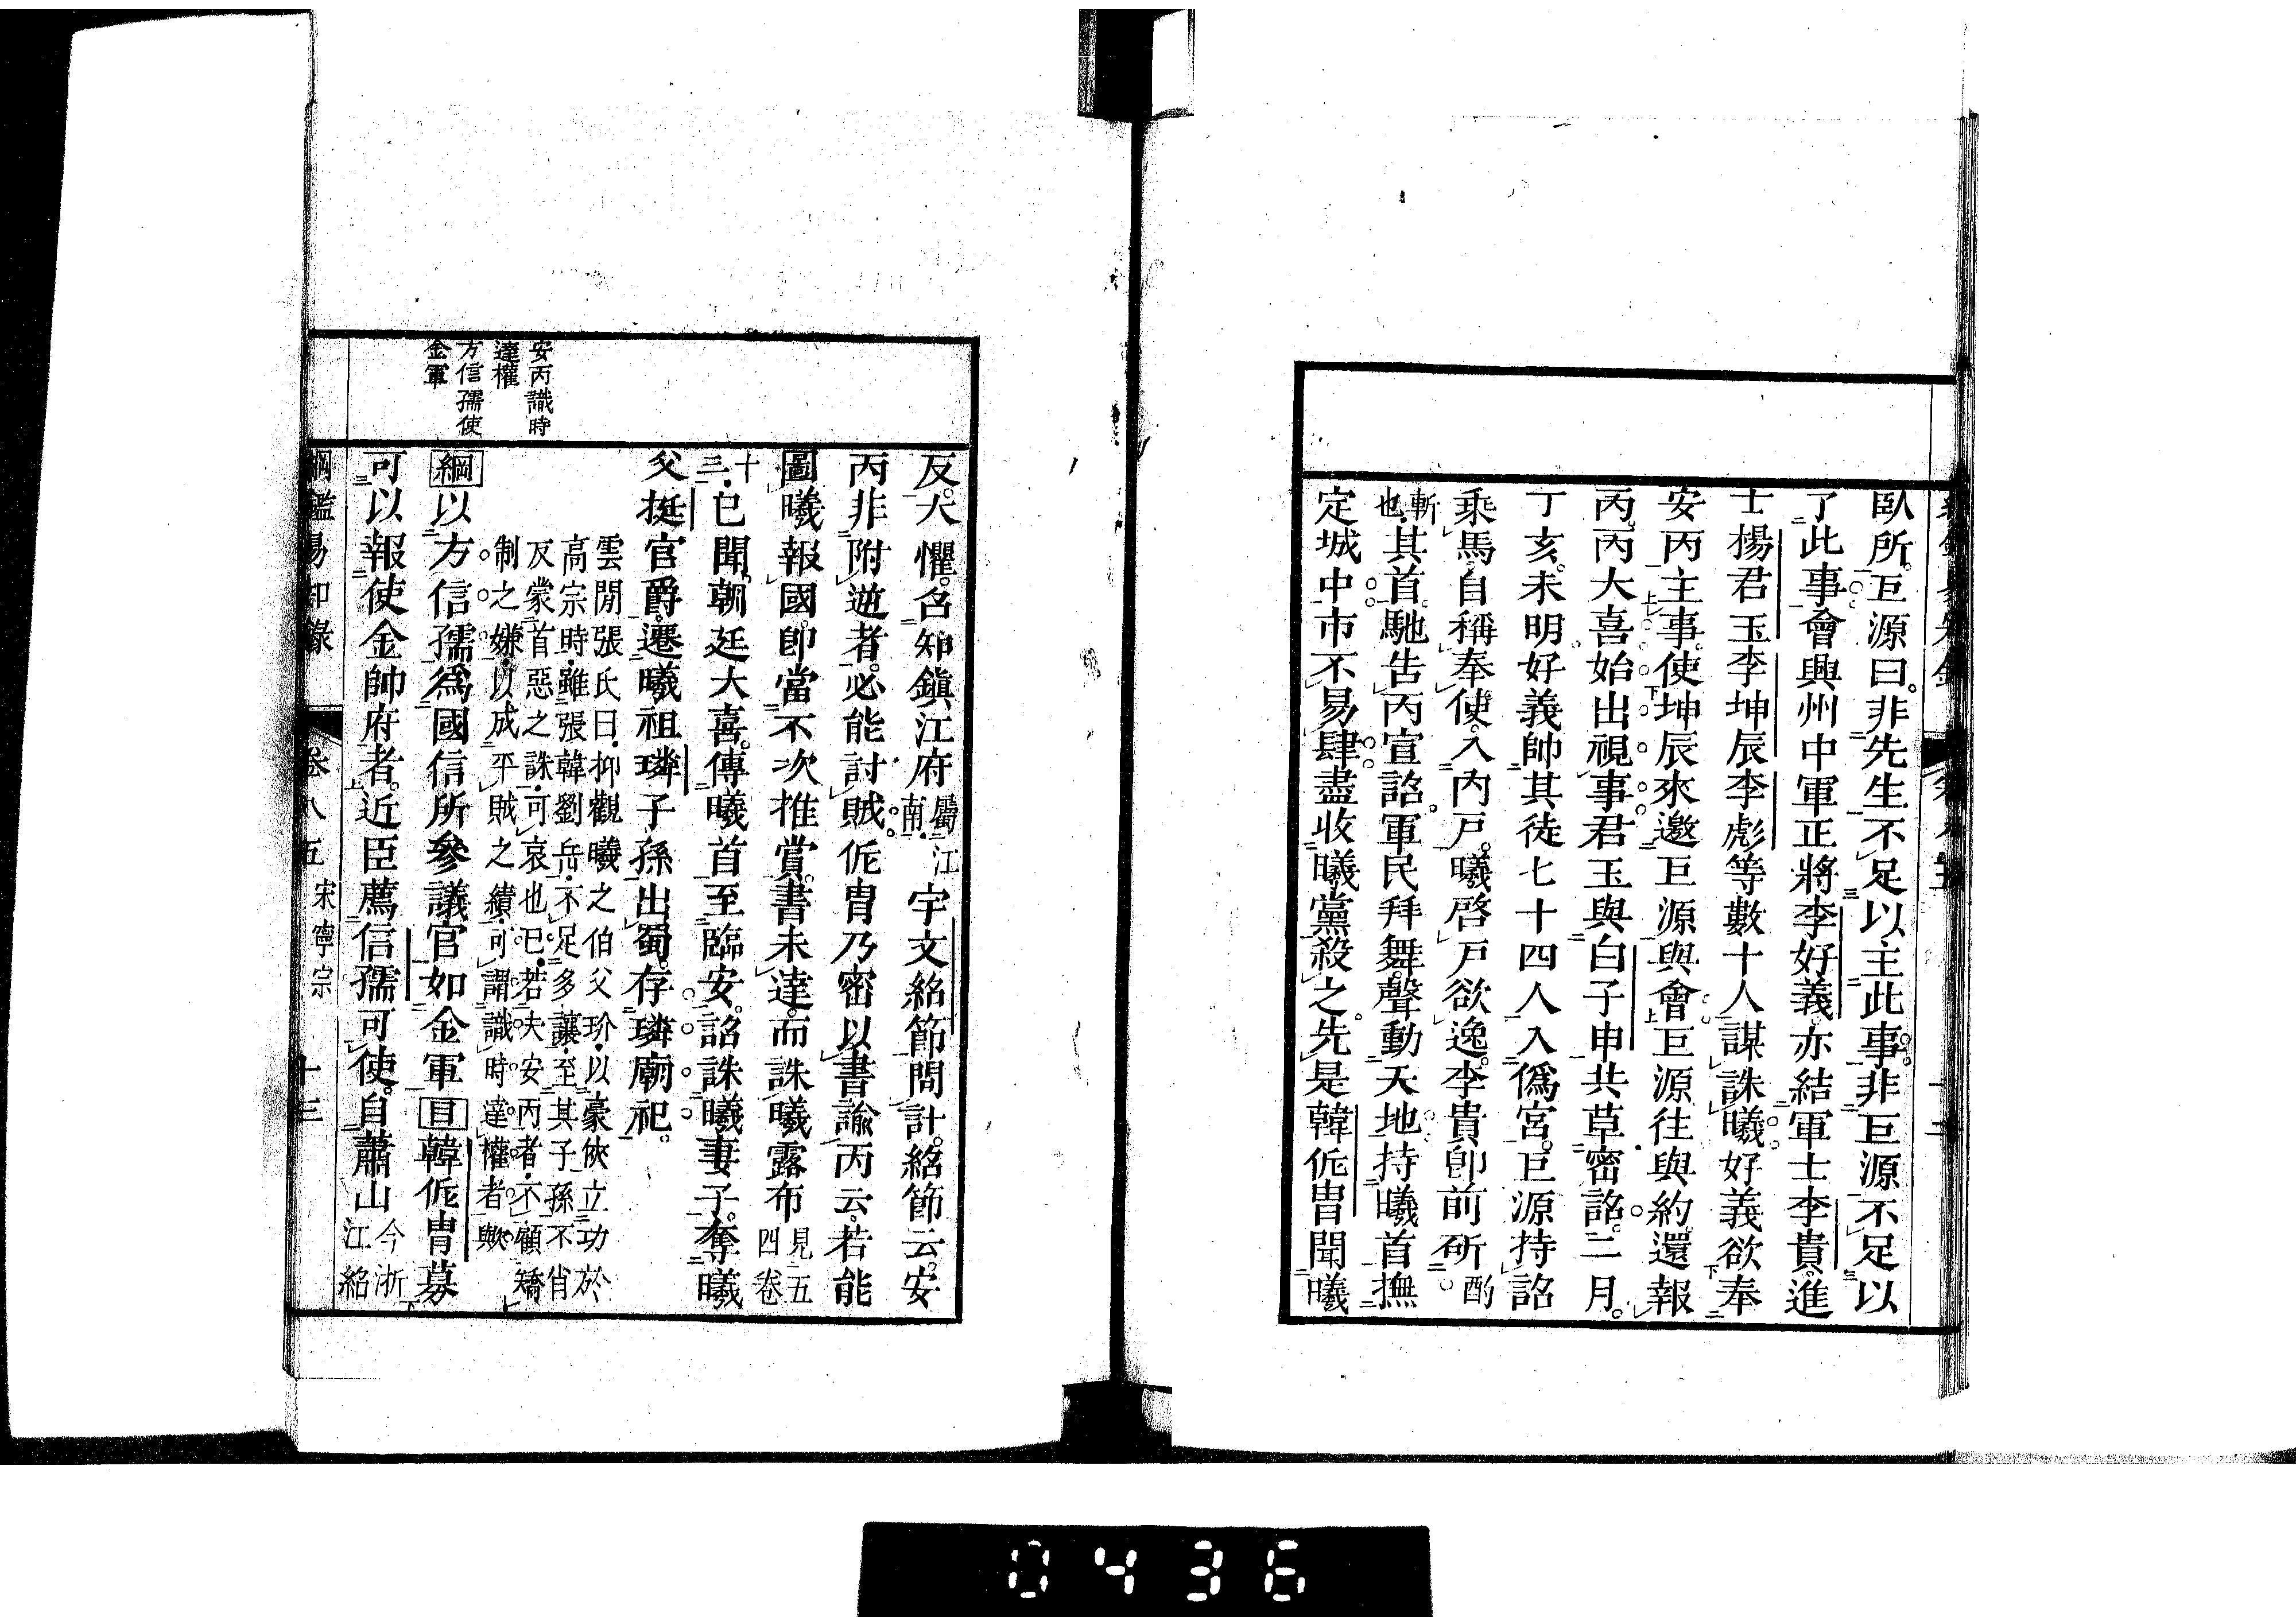 臥所。巨源曰。非先生不足以主此事。非巨源不足以
了此事。會興州中軍正將李好義。亦結軍士李貴。進
士楊君玉李坤辰李彪等數十人謀誅曦。好義欲奉
安丙主事。使坤辰來邀巨源與會。巨源往與約。還報
丙。丙大喜。始出視事。君玉與白子申共草密詔。二月。
丁亥。未明。好義帥其徒七十四人入僞宮。巨源持詔
乘馬。自稱奉使。入內戶。曦啓戶欲逸。李貴卽前斫酌
斬也。其首。馳告丙宣詔。軍民拜舞。聲動天地。持曦首撫
定城中。市不易肆。盡收曦黨殺之。先是韓侂冑聞曦
反。大懼。召知鎭江府屬江南。宇文紹節問計。紹節云。安
丙非附逆者。必能討賊。侂冑乃密以書諭丙云。若能
圖曦報國。卽當不次推賞。書未達。而誅曦露布見五四卷
十三。已聞。朝廷大喜。傳曦首至臨安。詔誅曦妻子。奪曦
父挺官爵。遷曦祖璘子孫出蜀。存璘廟祀。
雲閒張氏曰。抑觀曦之伯父玠。以豪俠立功於
高宗時。雖張韓劉岳。不足多讓。至其子孫不肖
反蒙首惡之誅。可哀也已。若夫安丙者。不顧矯
制之嫌。以成平賊之績。可謂識時達權者歟
綱以方信孺爲國信所參議官如金軍目韓侂冑募
可以報使金帥府者。近臣薦信孺可使。自蕭山今浙江紹
安丙識時
達權
方信孺使
金軍
綱鑑易知錄 卷八五 宋寧宗 十三
0436